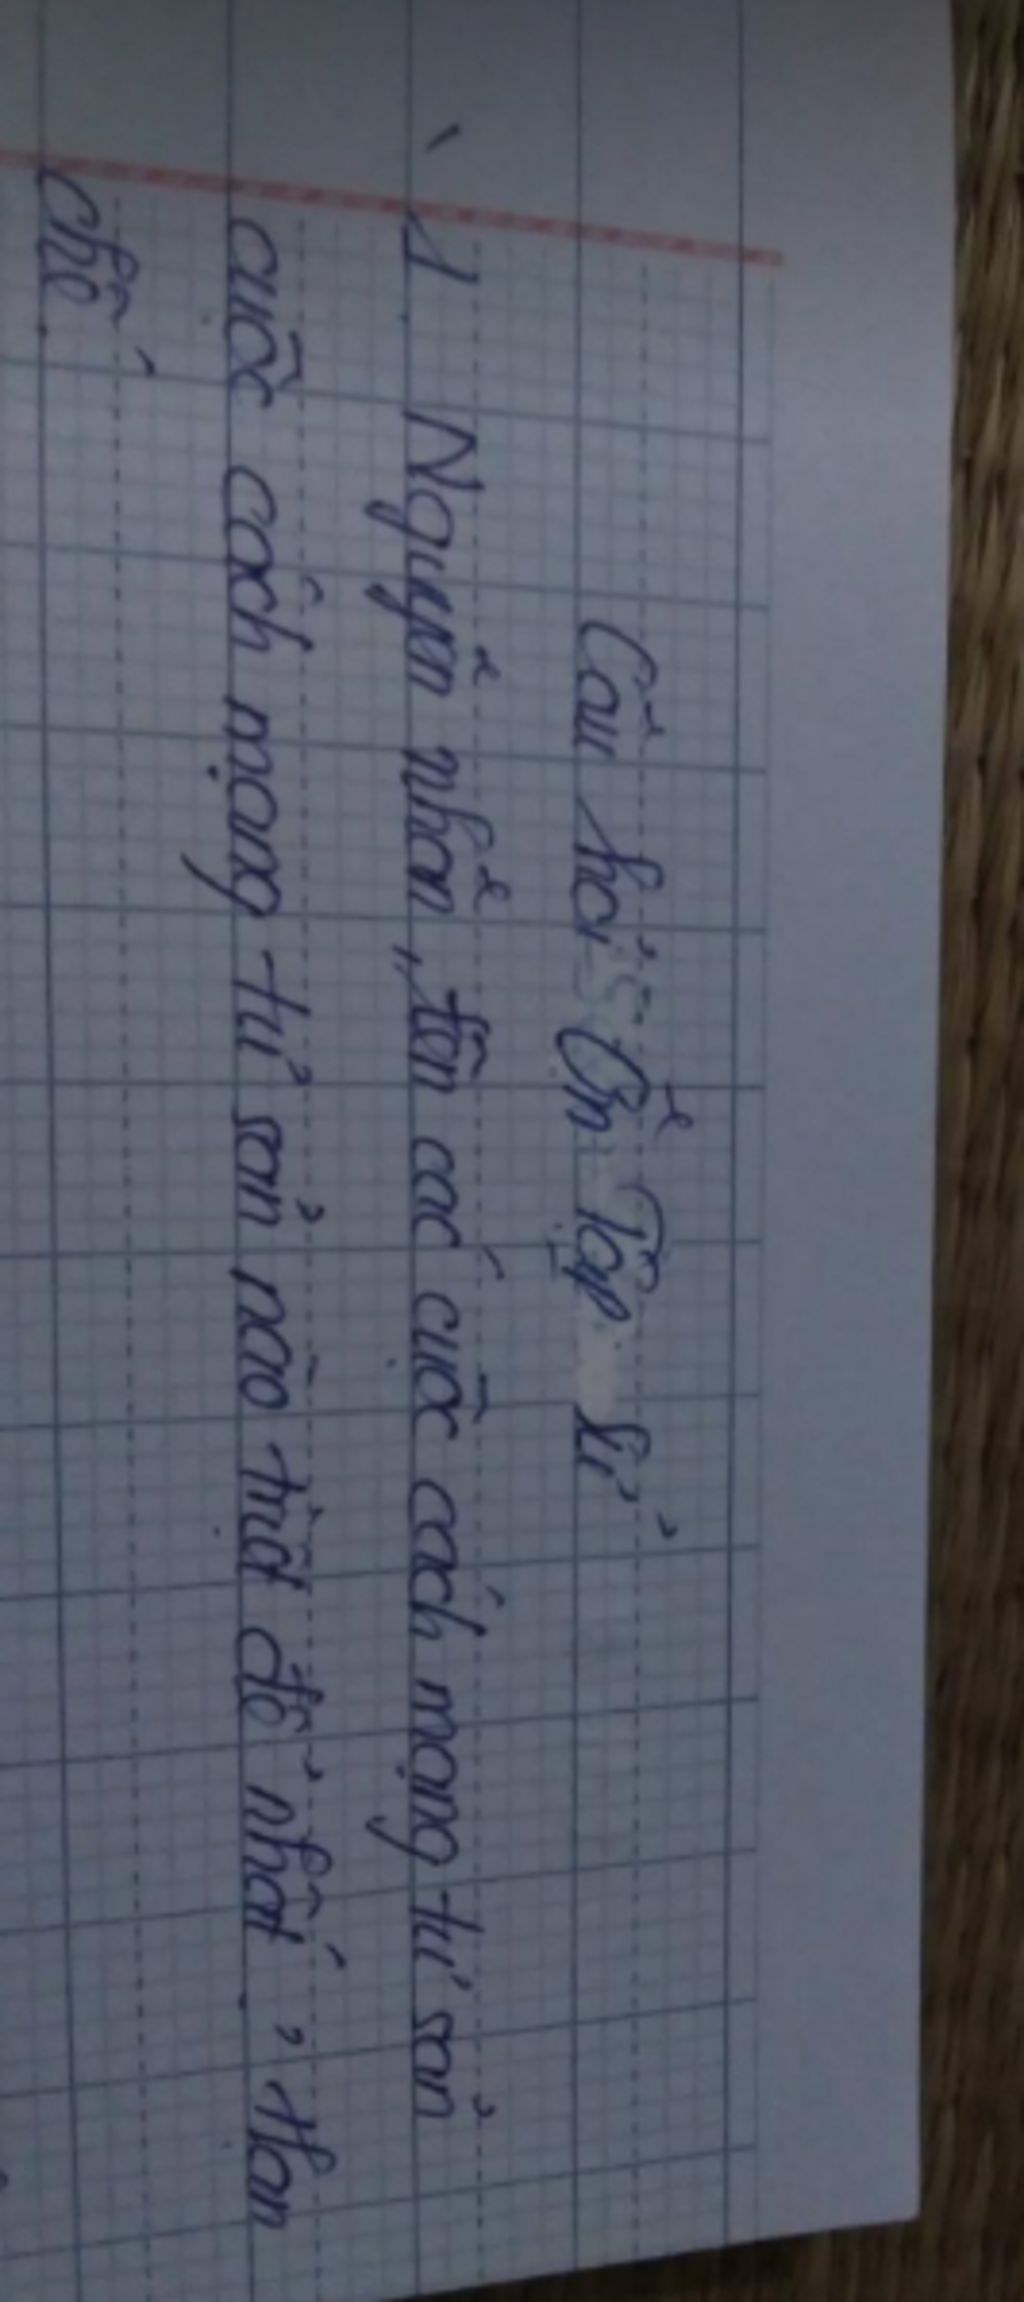 Câu hỏi Ôn Tập Sử
1. Nguyên nhân, tên các cuộc cách mạng tư sản
cuộc cách mạng tư sản nào triệt để nhất, Hạn
chế.